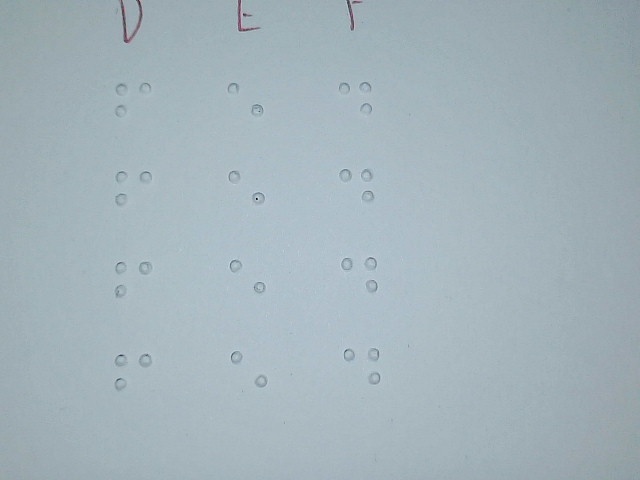 D E F
⠋ ⠑ ⠙
⠋ ⠑ ⠙
⠋ ⠑ ⠙
⠋ ⠑ ⠙